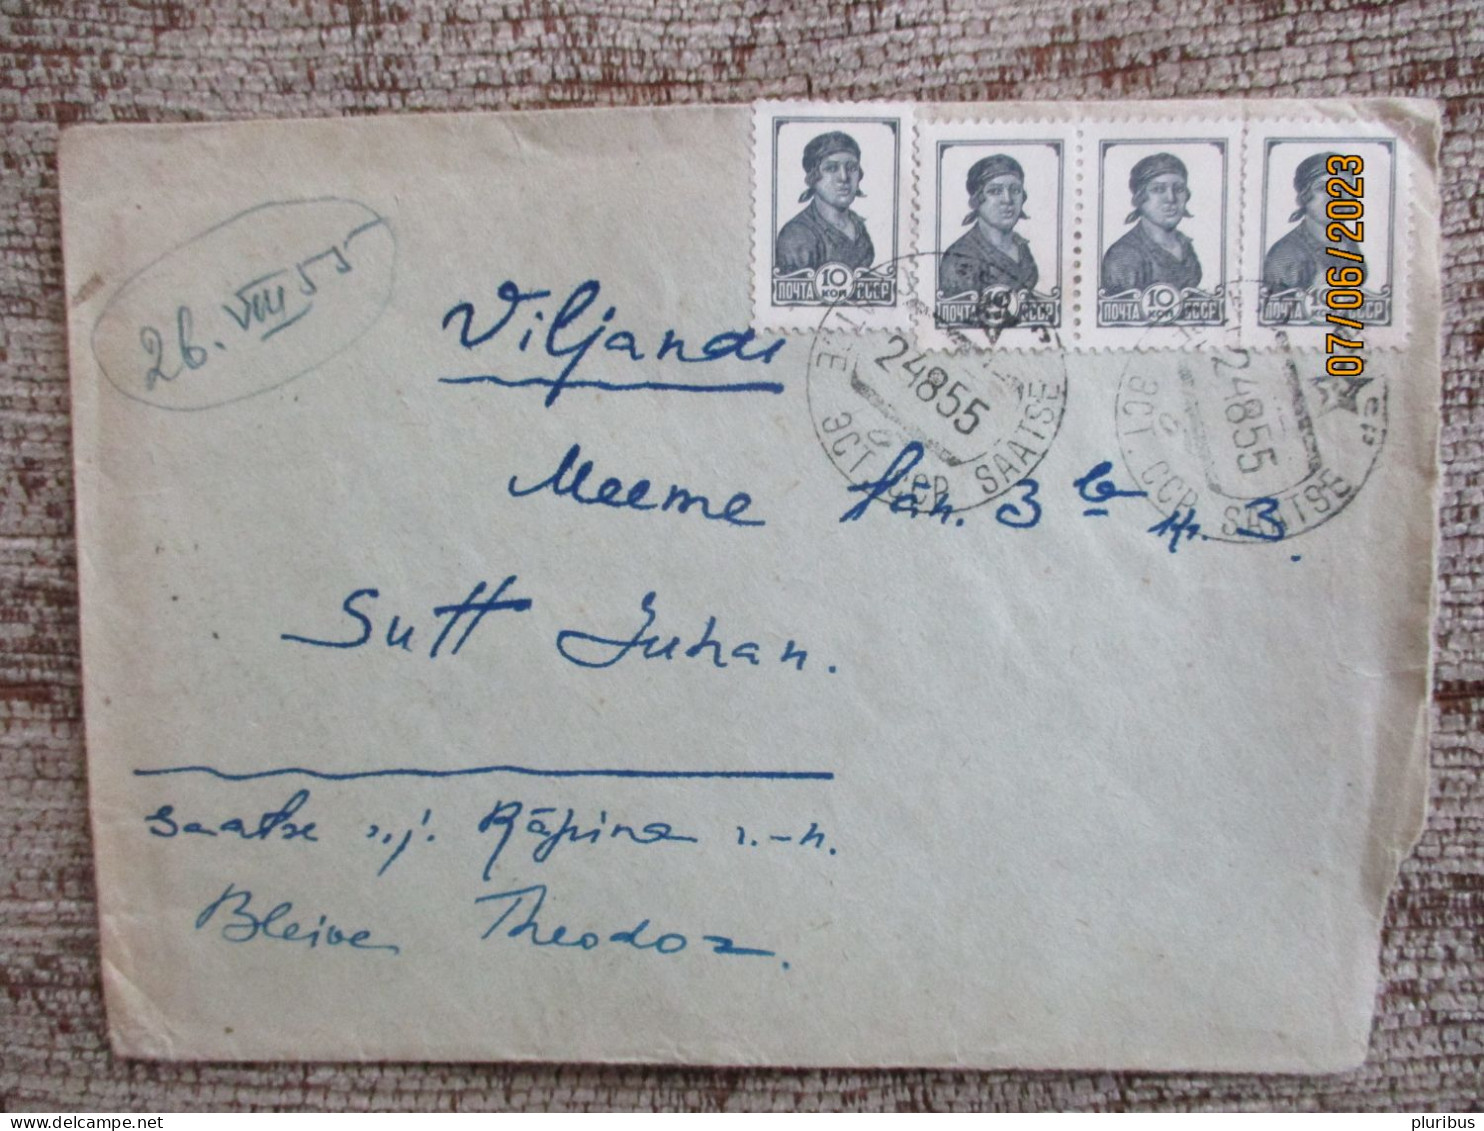 26. VIII 55
10 КОП
ПОЧТА СССР
10 КОП
ПОЧТА СССР
10 КОП
ПОЧТА СССР
ПОЧТА СССР
07/06/2023
24855
ЭСТ. ССР SAATSE
24855
ЭСТ. ССР SAATSE
Viljandi
Meeme tän. 3 b Kr. 3.
Sutt Juhan.
Saatse s.j. Räpina r.-n.
Bleive Theodor.
pluribus